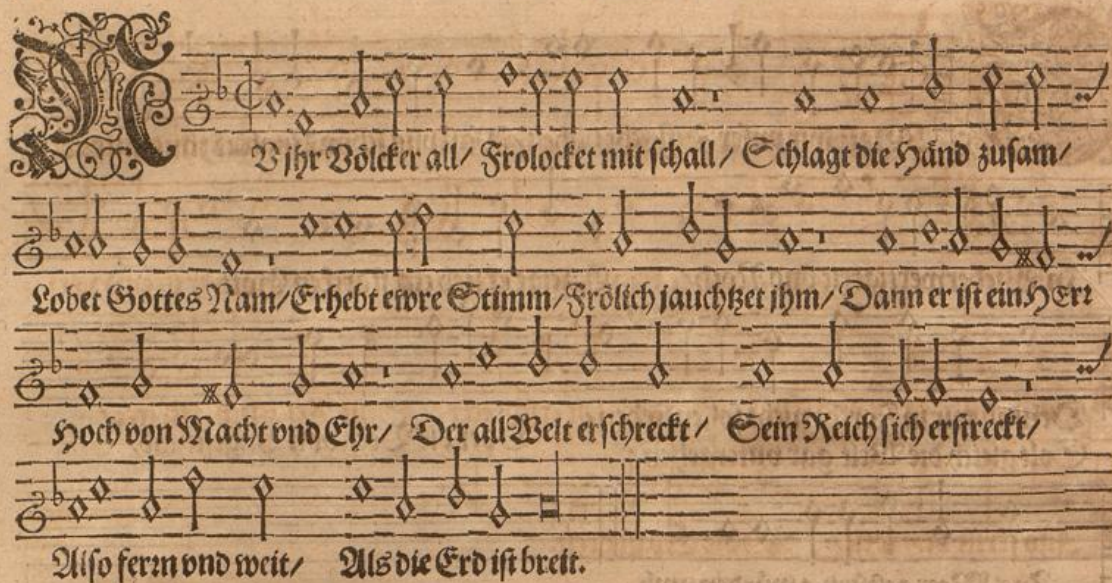 NV jhr Völcker all/ Frolocket mit ſchall/ Schlagt die Händ zuſam/
Lobet Gottes Nam/ Erhebt ewre Stimm/ Frölich jauchtzet jhm/ Dann er iſt ein HErr
Hoch von Macht vnd Ehr/ Der all Welt erſchreckt/ Sein Reich ſich erſtreckt/
Alſo ferrn vnd weit/ Als die Erd iſt breit.